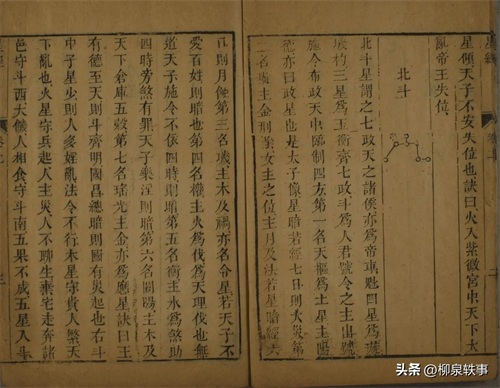 星傾天子不安失位也訣曰火入紫微宮中天下大
亂帝王失位
北斗
北斗星謂之七政天之諸侯亦爲帝車魁四星爲璇
璣杓三星爲玉衡齊七政斗爲人君號令之主出號
施令布政天中臨制四方第一名天樞爲土星主陽
德亦曰政星也是太子像星暗若經七日則大災第
二名璇主金刑陰女主之位主月及法若星暗經六
日則月蝕第三名璣主木及禍亦名令星若天子不
愛百姓則暗也第四名權主火爲伐爲天理伐也無
道天子施令不依四時則暗第五名衡主水爲煞助
四時旁煞有罪天子樂淫則暗第六名闓陽主木及
天下倉庫五穀第七名瑤光主金亦爲應星訣曰王
有德至天則斗齊明國昌總暗則國有災起也右斗
中子星少則人多婬亂法令不行木星守貴人繫天
下亂也火星守兵起人主災人不聊生棄宅走奔諸
邑守斗西大饑人相食守斗南五果不成五星入斗
頭条 @柳泉轶事